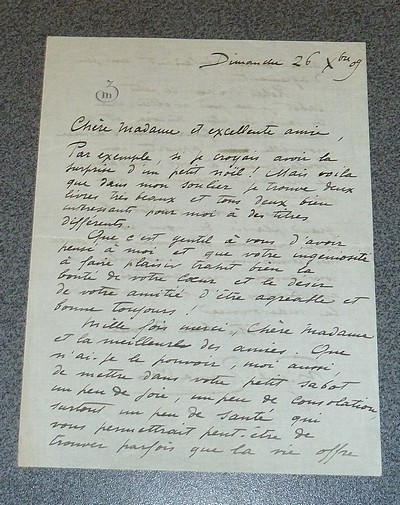 Dimanche 26 Xbre 09
Chère Madame et excellente amie,
Par exemple, si je croyais avoir la
surprise d'un petit nöël ! Mais voila
que dans mon soulier je trouve deux
livres très beaux et tous deux bien
intéressants pour moi à des titres
différents.
Que c'est gentil à vous d'avoir
pensé à moi et que votre ingéniosité
à faire plaisir trahit bien la
bonté de votre cœur et le désir
de votre amitié d'être agréable et
bonne toujours !
Mille fois merci, chère Madame
et la meilleure des amies. Que
n'ai-je le pouvoir, moi aussi,
de mettre dans votre petit sabot
un peu de joie, un peu de consolation,
surtout un peu de santé qui
vous permettrait peut-être de
trouver parfois que la vie offre